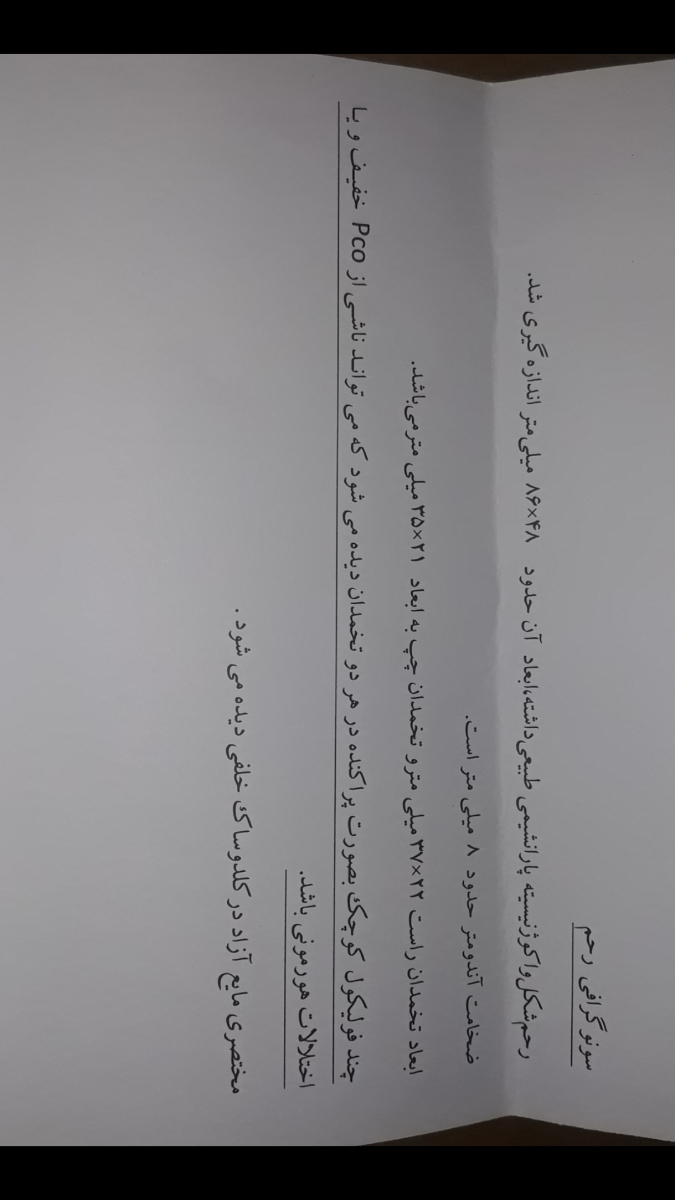 سونوگرافی رحم
رحم شکل واکوژنیسیته پارانشیمی طبیعی داشته،ابعاد آن حدود ۸۶×۴۸ میلی متر اندازه گیری شد.
ضخامت آندومتر حدود ۸ میلی متر است.
ابعاد تخمدان راست ۳۷×۲۲ میلی متر و تخمدان چپ به ابعاد ۳۵×۲۱ میلی متر می باشد.
چند فولیکول کوچک بصورت پراکنده در هر دو تخمدان دیده می شود که می تواند ناشی از Pco خفیف و یا
اختلالات هورمونی باشد.
مختصری مایع آزاد در کلدوساک خلفی دیده می شود .